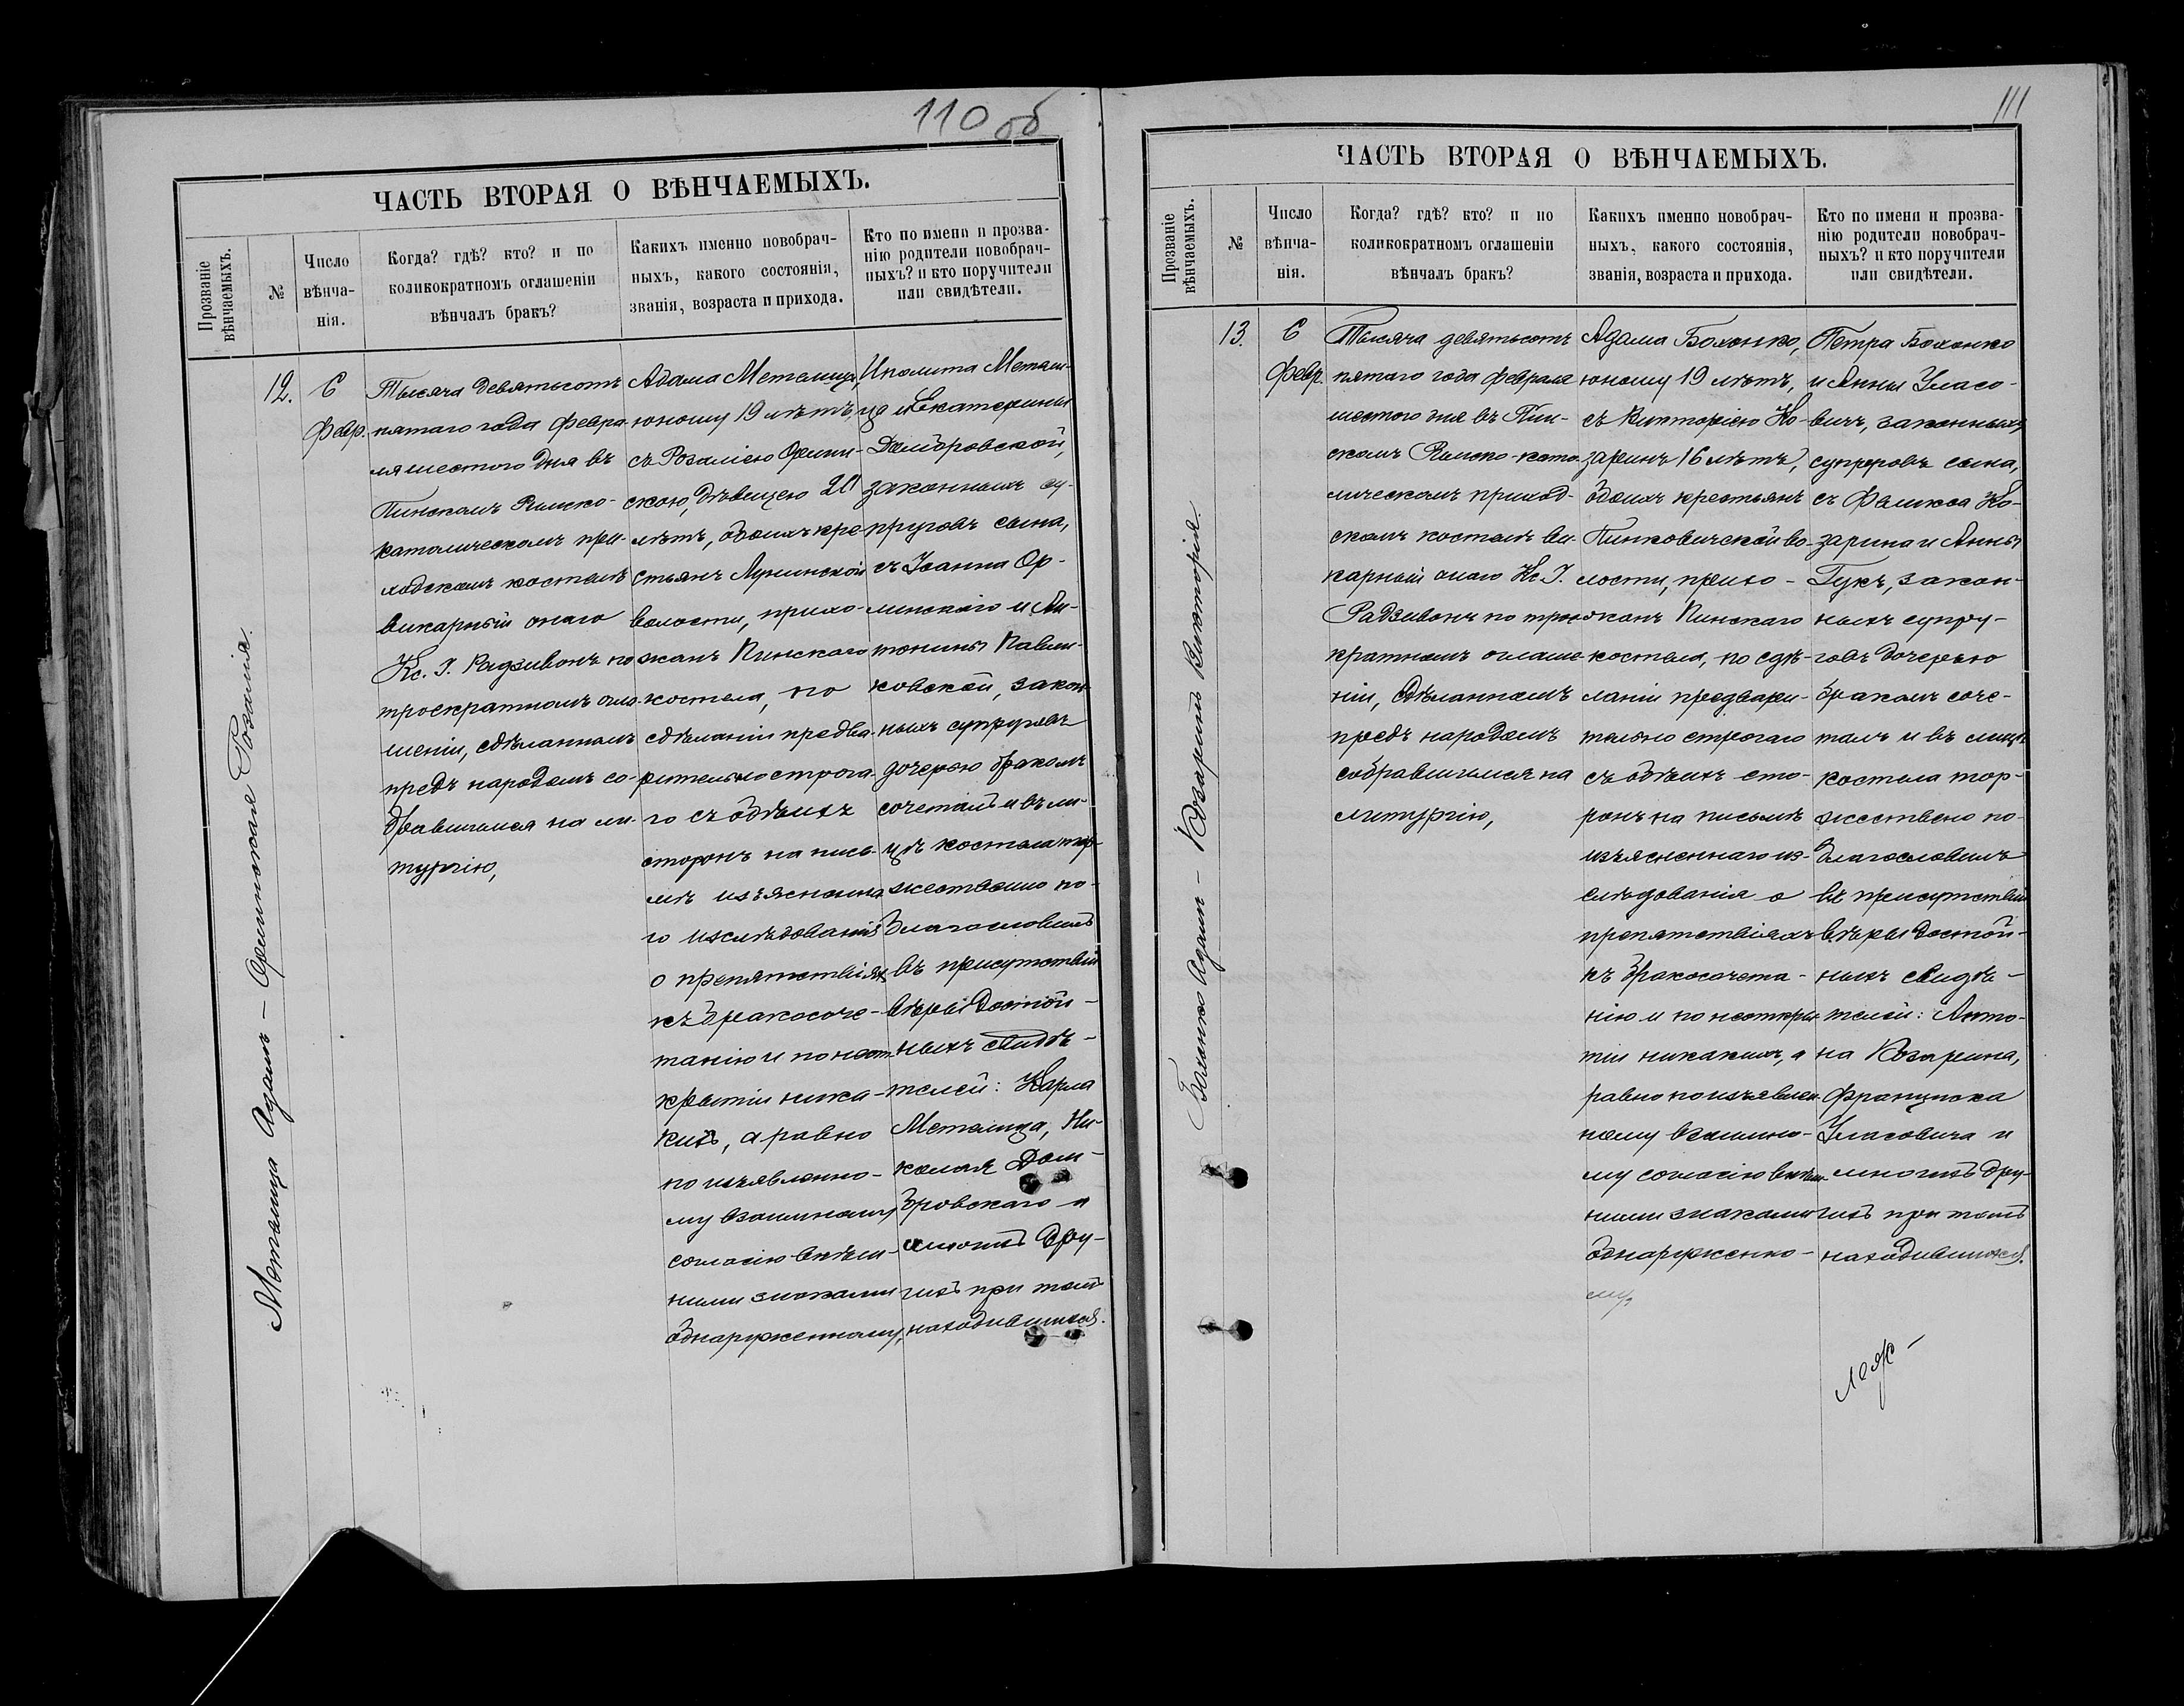 110 об
ЧАСТЬ ВТОРАЯ О ВѢНЧАЕМЫХЪ.
Прозваніе
вѣнчаемыхъ.
№
Число
вѣнча-
нія.
Когда? гдѣ? кто? и по
коликократномъ оглашеніи
вѣнчалъ бракъ?
Какихъ именно новобрач-
ныхъ, какого состоянія,
званія, возраста и прихода.
Кто по имени и прозва-
нію родители новобрач-
ныхъ? и кто поручители
или свидѣтели.
Метелица Адамъ – Орлинская Розалія.
12.
6
Февр.
Тысяча девятьсотъ
пятаго года февра-
ля шестого дня въ
Пинскомъ Римско-
католическомъ при-
ходскомъ костелѣ
викарный онаго
Кс. І. Радзивонъ по
троекратномъ огла-
шеніи, сдѣланномъ
предъ народомъ со-
бравшимся на ли-
тургію,
Адама Метелица,
юношу 19 лѣтъ,
съ Розаліею Орлин-
скою, дѣвицею 20
лѣтъ, обоихъ кре-
стьянъ Лунинской
волости, прихо-
жанъ Пинскаго
костела, по
сдѣланіи предва-
рительно строга-
го съ обѣихъ
сторонъ на пись-
мѣ изъясненна-
го изслѣдованія
о препятствіяхъ
къ бракосоче-
танію и по неот-
крытіи ника-
кихъ, а равно
по изъявленно-
му взаимному
согласію внѣш-
ними знаками
обнаруженному,
Иполита Метели-
ца и Екатерины
Домбровской,
законныхъ су-
пруговъ сына,
съ Іоанна Ор-
линскаго и Ан-
тонины Павлин-
ковской, закон-
ныхъ супруговъ
дочерью бракомъ
сочеталъ и въ ли-
цѣ костела тор-
жественно по-
благословилъ
въ присутствіи
вѣры достой-
ныхъ свидѣ-
телей: Карла
Метелица, Ни-
колая Дом-
бровскаго и
многихъ дру-
гихъ при томъ
находившихся.
111
ЧАСТЬ ВТОРАЯ О ВѢНЧАЕМЫХЪ.
Прозваніе
вѣнчаемыхъ.
№
Число
вѣнча-
нія.
Когда? гдѣ? кто? и по
коликократномъ оглашеніи
вѣнчалъ бракъ?
Какихъ именно новобрач-
ныхъ, какого состоянія,
званія, возраста и прихода.
Кто по имени и прозва-
нію родители новобрач-
ныхъ? и кто поручители
или свидѣтели.
Боханко Адамъ – Козаринъ Викторія.
13.
6
Февр.
Тысяча девятьсотъ
пятаго года февраля
шестого дня въ Пин-
скомъ Римско-като-
лическомъ приход-
скомъ костелѣ ви-
карный онаго Кс. І.
Радзивонъ по трое-
кратномъ оглаше-
ніи, сдѣланномъ
предъ народомъ
собравшимся на
литургію,
Адама Боханко,
юношу 19 лѣтъ,
съ Викторіею Ко-
заринъ 16 лѣтъ,
обоихъ крестьянъ
Пинковичской во-
лости, прихо-
жанъ Пинскаго
костела, по сдѣ-
ланіи предвари-
тельно строгаго
съ обѣихъ сто-
ронъ на письмѣ
изъясненнаго из-
слѣдованія о
препятствіяхъ
къ бракосочета-
нію и по неоткры-
тіи никакихъ, а
равно по изъявлен-
ному взаимно-
му согласію внѣш-
ними знаками
обнаруженно-
му,
Петра Боханко
и Анны Уласо-
вичъ, законныхъ
супруговъ сына,
съ Феликса Ко-
зарина и Анны
Гукъ, закон-
ныхъ супру-
говъ дочерью
бракомъ соче-
талъ и въ лицѣ
костела тор-
жествено по-
благословилъ
въ присутствіи
вѣры достой-
ныхъ свидѣ-
телей: Анто-
на Козарина,
Франциска
Уласовича и
многихъ дру-
гихъ при томъ
находившихся.